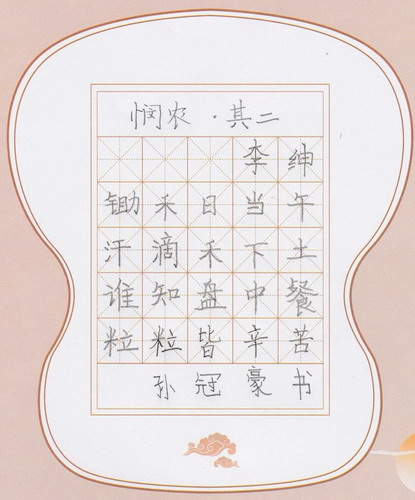 悯农·其二
李绅
锄禾日当午
汗滴禾下土
谁知盘中餐
粒粒皆辛苦
孙冠豪书